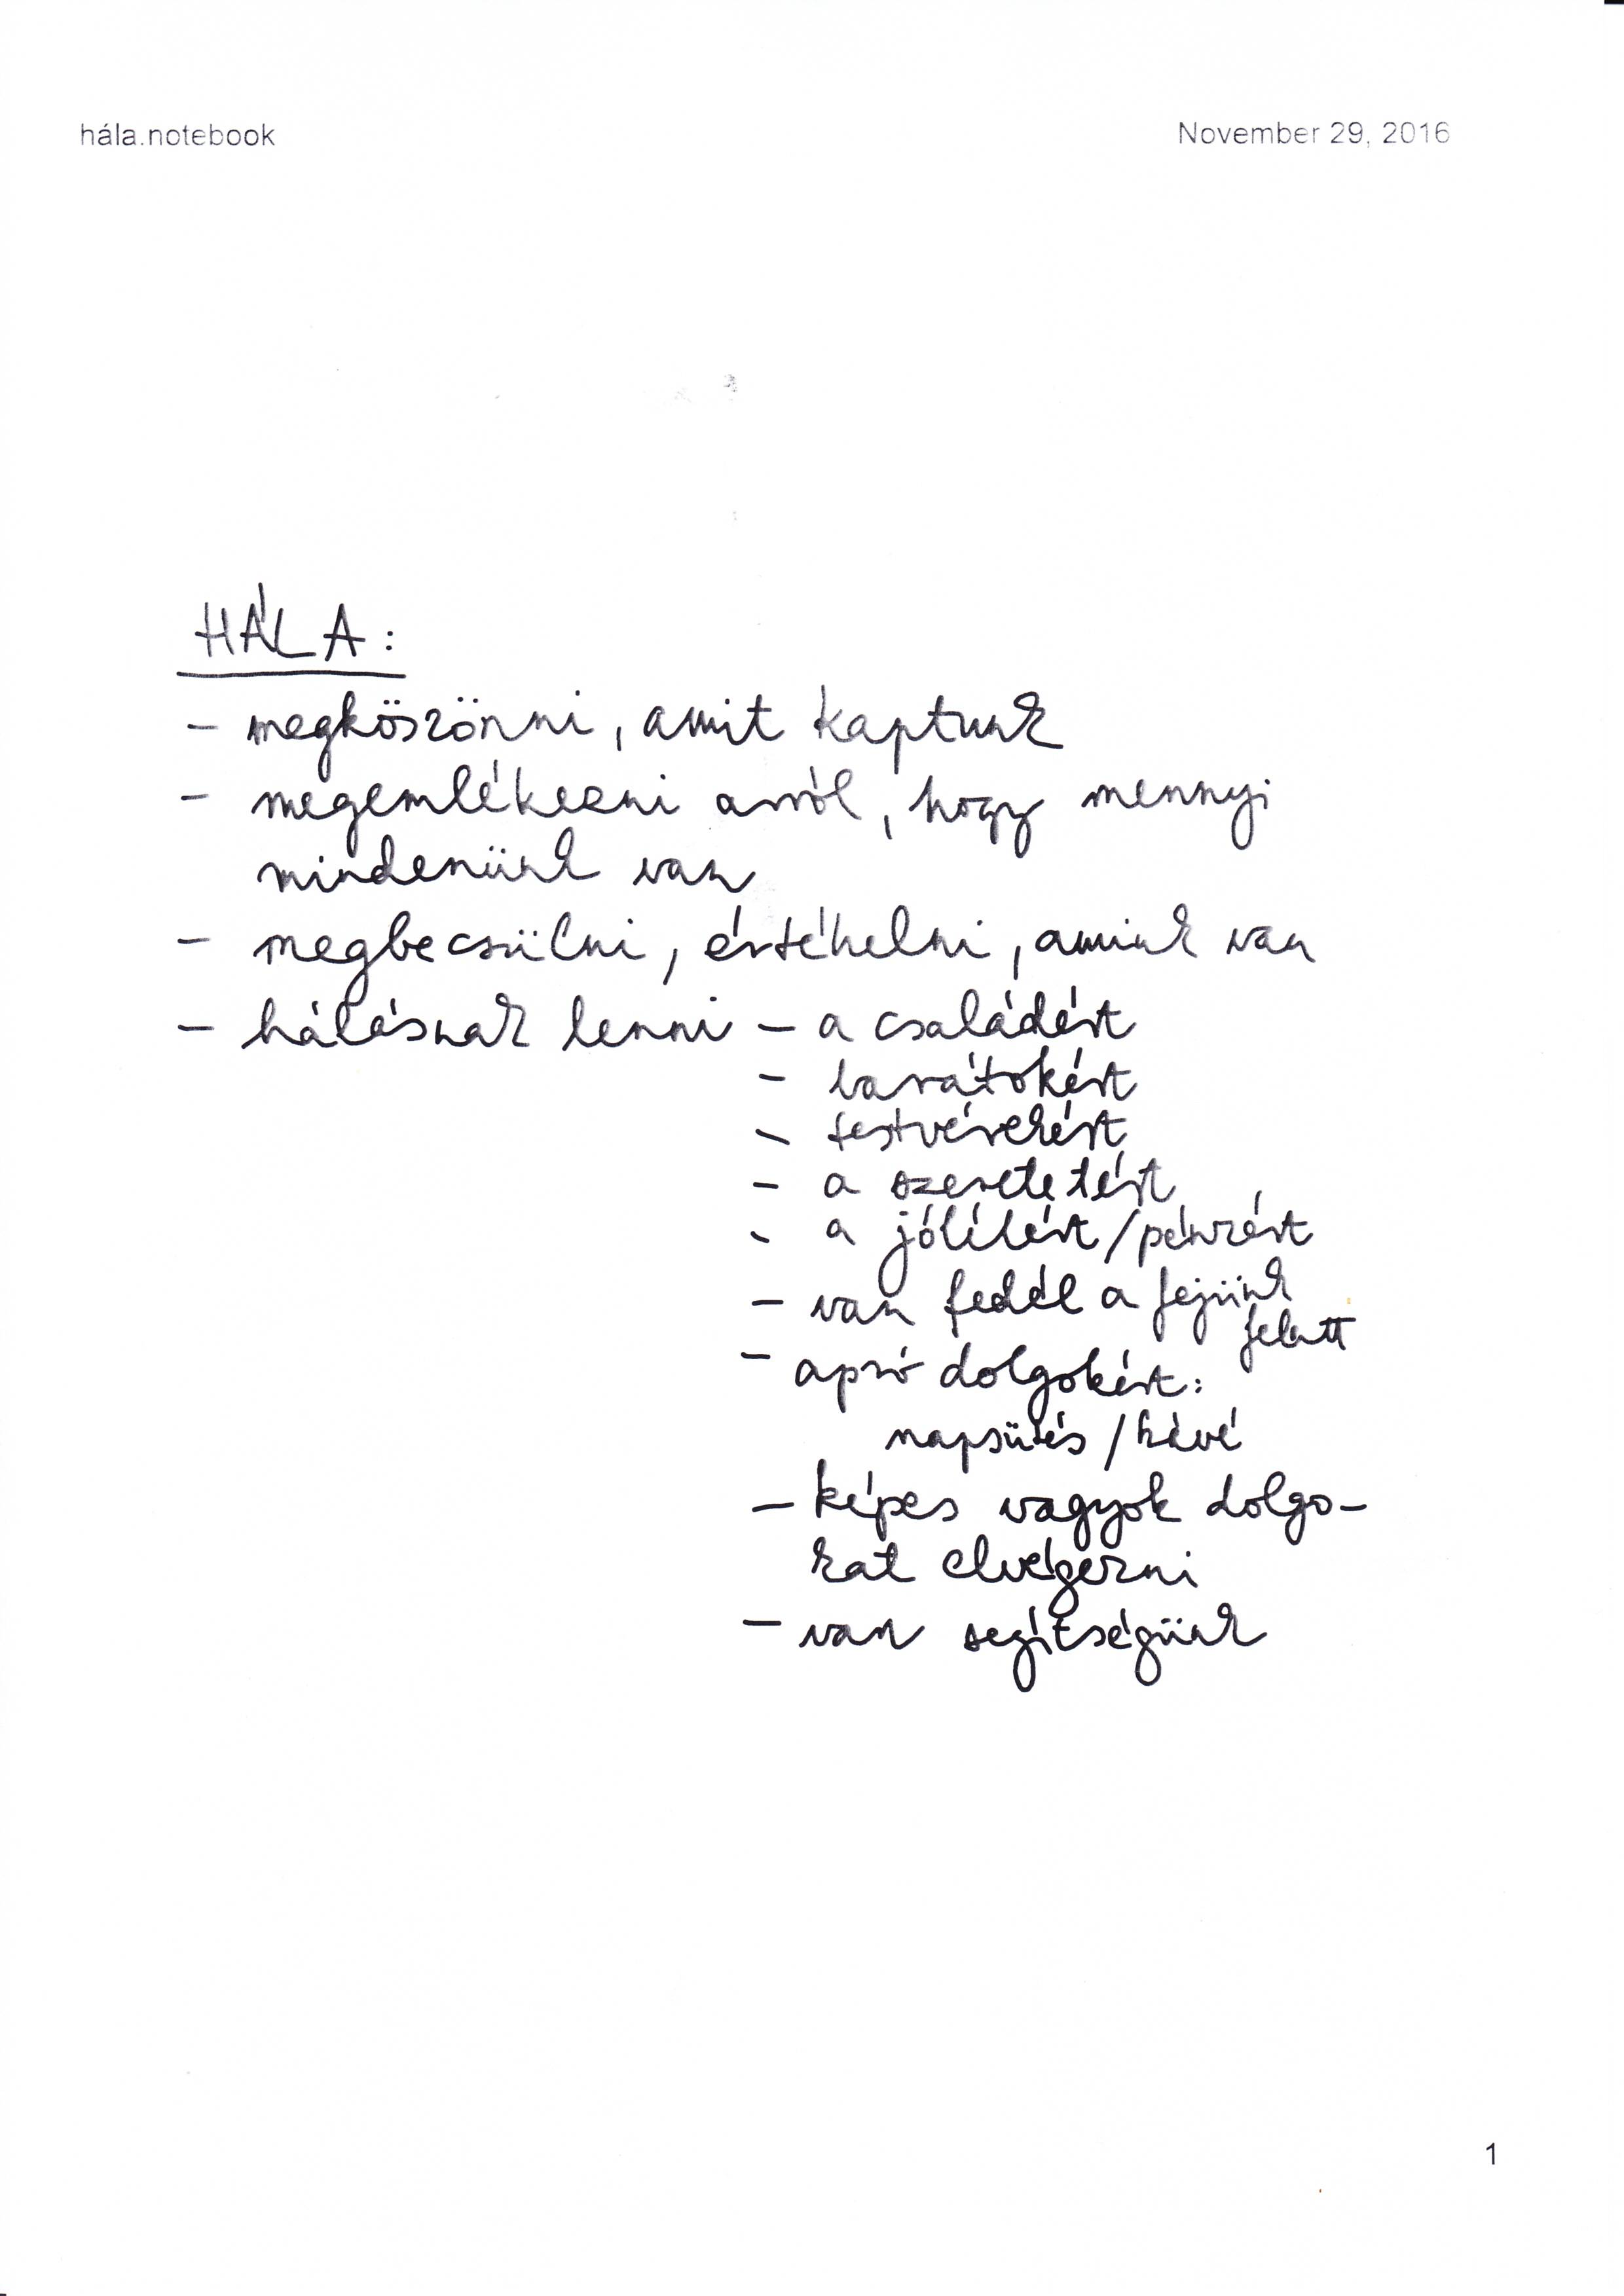 hála.notebook November 29, 2016
HÁLA:
- megköszönni, amit kaptunk
- megemlékezni arról, hogy mennyi
mindenünk van
- megbecsülni, értékelni, amink van
- hálásnak lenni - a családért
- barátokért
- testvérekért
- a szeretetért
- a jólétért/pénzért
- van fedél a fejünk
felett
- apró dolgokért:
napsütés / kávé
- képes vagyok dolgo-
kat elvégezni
- van segítségünk
1